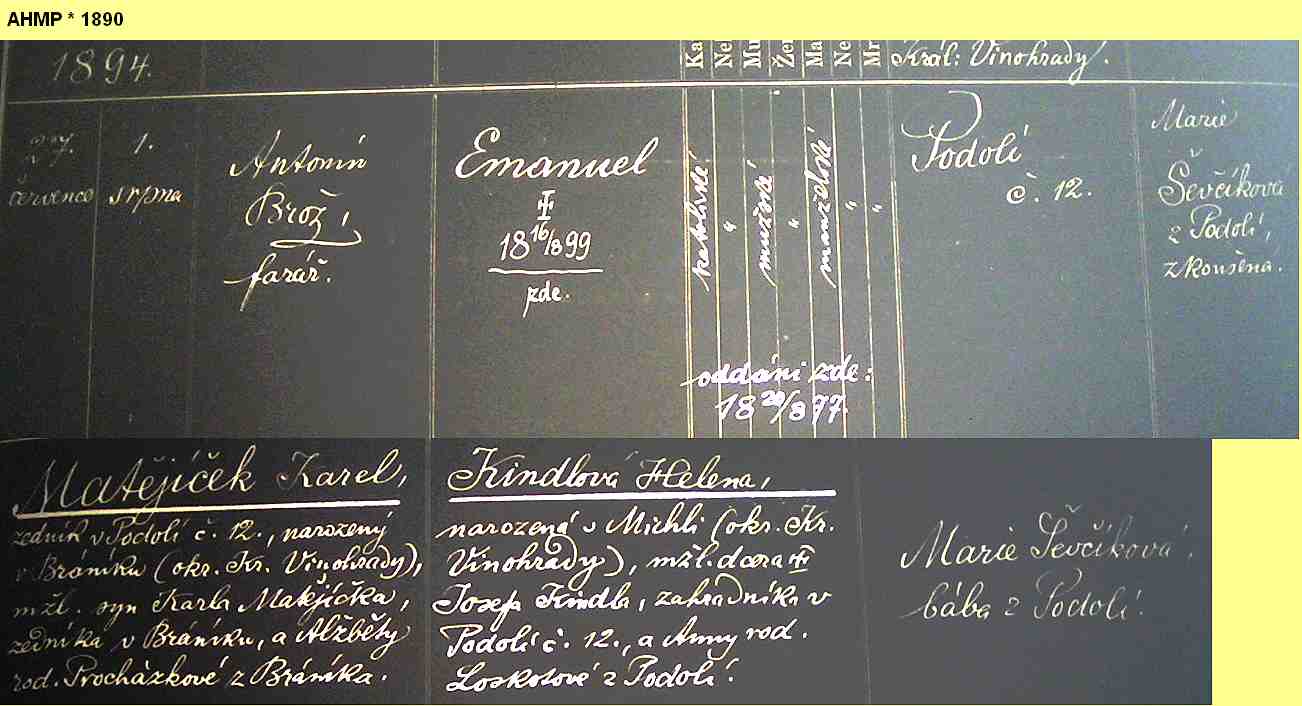 AHMP * 1890
1894.
Ka
Ne
Mu
Že
Ma
Ne
Mr
Král: Vinohrady.
27.
července
1.
srpna
Antonín
Brož,
farář.
Emanuel
18 16/8 99
zde.
katolické
"
mužské
"
manželské
"
"
Podolí
č. 12.
Marie
Ševčíková
z Podolí,
zkoušena.
oddáni zde:
18 /8 97.
Matějíček Karel,
zedník v Podolí č. 12., narozený
v Bráníku (okr. Kr. Vinohrady),
mžl. syn Karla Matějíčka,
zedníka v Bráníku, a Alžběty
rod. Procházkové z Bráníka.
Kindlová Helena,
narozená v Michli (okr. Kr.
Vinohrady), mžl. dcera
Josefa Kindla, zahradníka v
Podolí č. 12., a Anny rod.
Loskotové z Podolí.
Marie Ševčíková,
bába z Podolí.